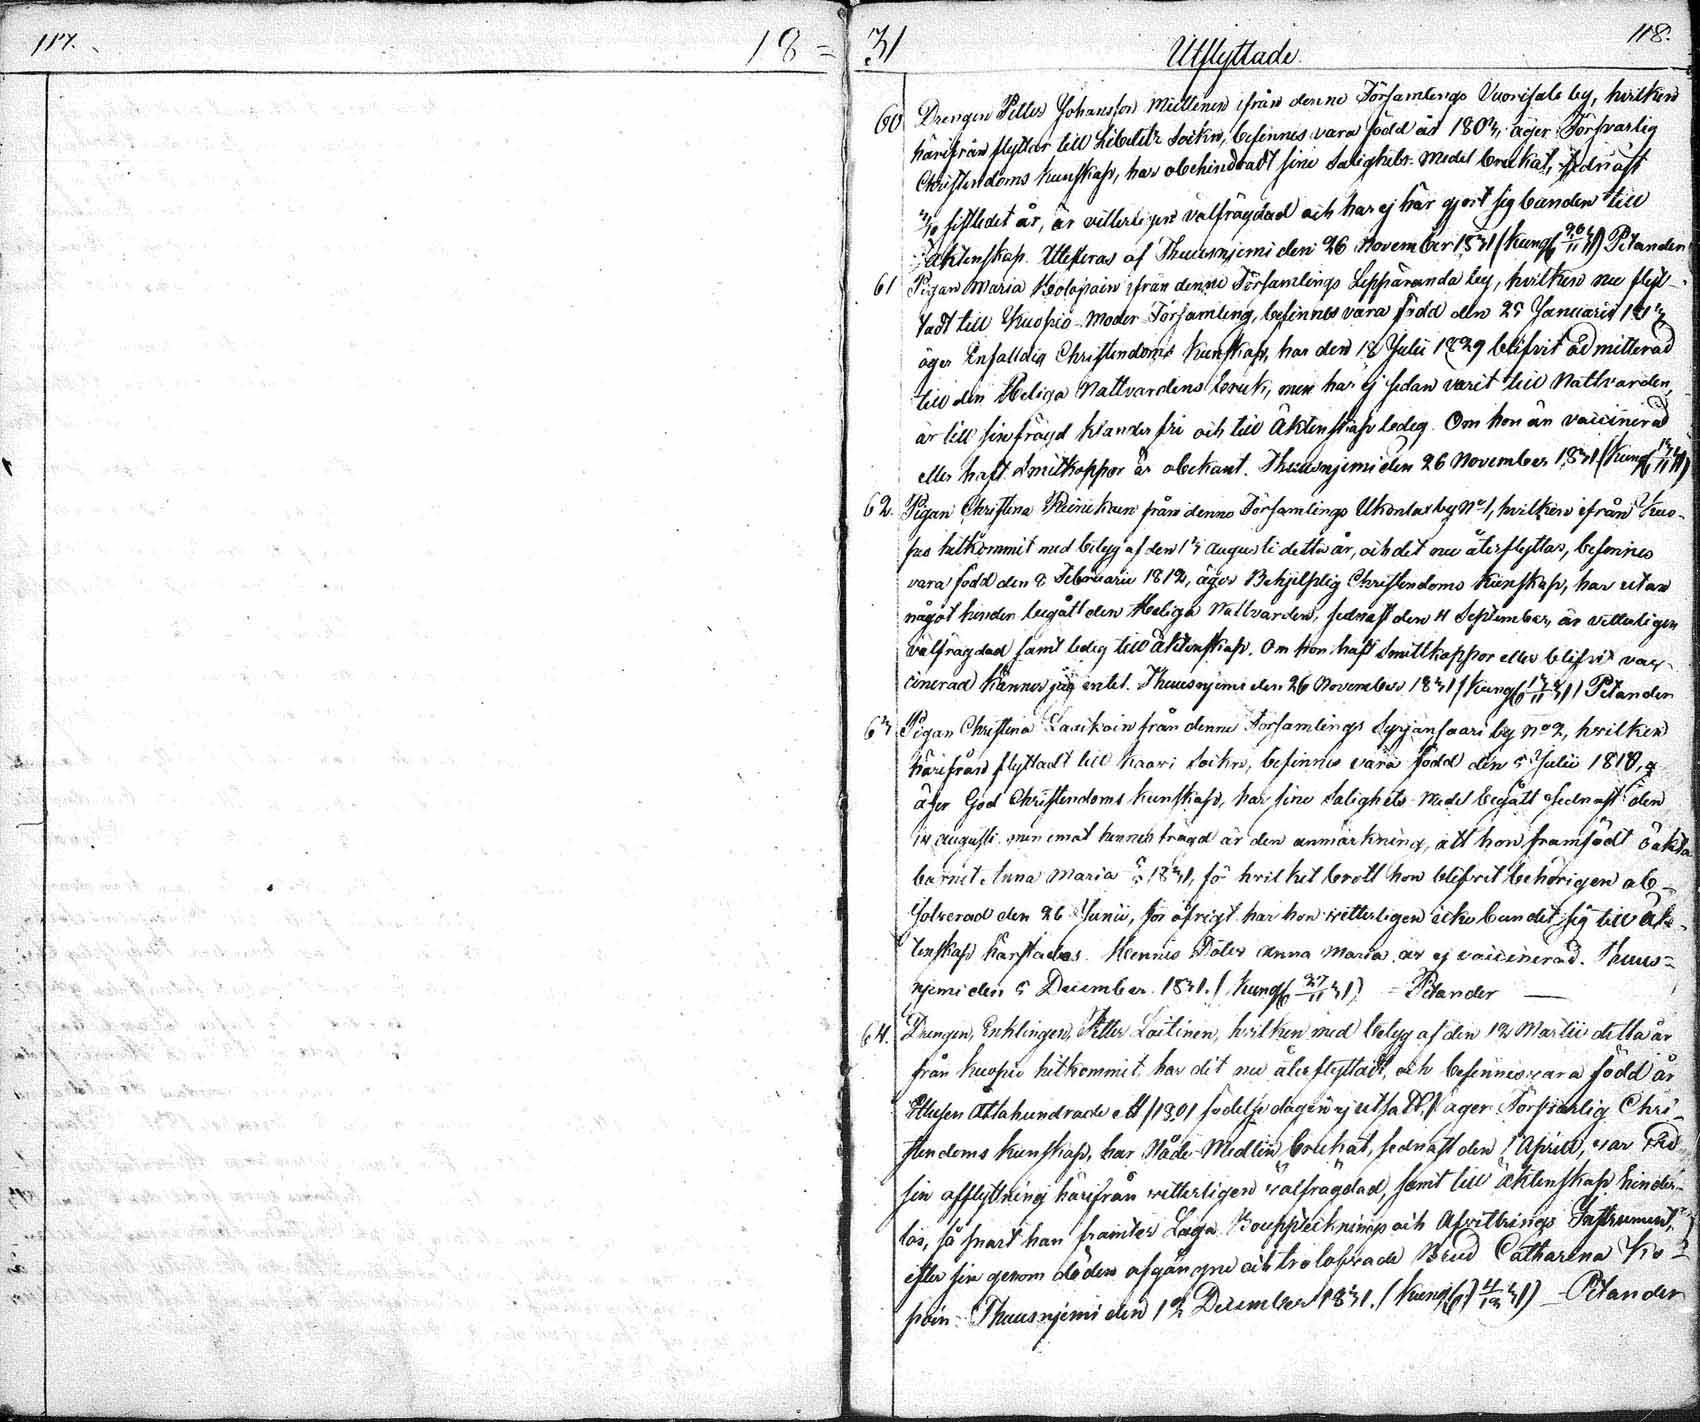 117.
18 =
31
Utflyttade.
118.
60 Drengen Petter Johansson Miettinen ifrån denne Församlings Vuorisalo by, hvilken
härifrån flyttar till Libelitz Sockn, befinnes vara född år 1803, äger Försvarlig
Christendoms Kunskap, har obehindradt sine Salighets-Medel brukat, sednast
sistledet år, är vitterligen välfrägdad och har ej här gjort sig bunden till
Äktenskap. Attesteras af Thuusnjemi den 26 November 1831 (Kungj 26/11 31) Petander
61 Pigan Maria Kolopain ifrån denne Församlings Leppäranda by, hvilken nu flyt-
tadt till Kuopio Moder Församling, befinnes vara född den 25 Januarii 1813
äger Enfalldig Christendoms Kunskap, har den 18 Julii 1829 blifvit admitterad
till den Heliga Nattvardens bruk, men har ej sedan varit till Nattvarden,
är till sin frägd klander fri och till Äktenskap ledig. Om hon är vaccinerad
eller haft Smittkoppor är obekant. Thuusnjemi den 26 November 1831 (Kungj 13/11 31)
62. Pigan Christina Reinikain från denne Församlings Ukonlax by No 1, hvilken ifrån Kuo-
pio hitkommit med betyg af den 13 Augusti detta år, och dit nu återflyttar, befinnes
vara född den 8 Februarii 1812, äger Behjelplig Christendoms Kunskap, har utan
något hinder begått den Heliga Nattvarden, sednast den 11 September, är vitterligen
välfrägdad samt ledig till Äktenskap. Om hon haft Smittkoppor eller blifvit vac-
cinerad känner jag intet. Thuusnjemi den 26 November 1831 (Kungj 13/11 31) Petander
63 Pigan Christina Lasikain från denne Församlings Syrjänsaari by No 2, hvilken
härifrån flyttadt till Kaavi Sockn, befinnes vara född den 5 Julii 1810,
äger God Christendoms Kunskap, har sine Salighets-Medel begått sednast den
14 Augusti, men emot hennes frägd är den anmärkning, att hon framfödt oäkta
barnet Anna Maria 1831, för hvilket brott hon blifvit behörigen ab-
solverad den 26 Junii, för öfrigt har hon vitterligen icke bundet sig till Äk-
tenskap härstädes. Hennes Doter Anna Maria är ej vaccinerad. Thuus-
njemi den 5 December 1831. (Kungj 27/11 31) Petander
64. Drengen, Enklingen, Petter Laitinen, hvilken med betyg af den 12 Martii detta år
från Kuopio hitkommit har dit nu återflyttadt, och befinnes vara född år
Ettusen Åttahundrade ett (1801 födelsedagen ej utsatt) äger Försvarlig Chri-
stendoms Kunskap, har Nåde Medlen brukat, sednast den 1 April, var vid
sin afflyttning härifrån vitterligen välfrägdad, samt till äktenskap hinder-
lös, så snart han framter Laga Bouppteckning och Afvittrings Instrument,
efter sin genom döden afgångne och trolofvade Brud Catharina Ko-
poin. Thuusnjemi den 12 December 1831. (Kungj 4/12 31) Petander